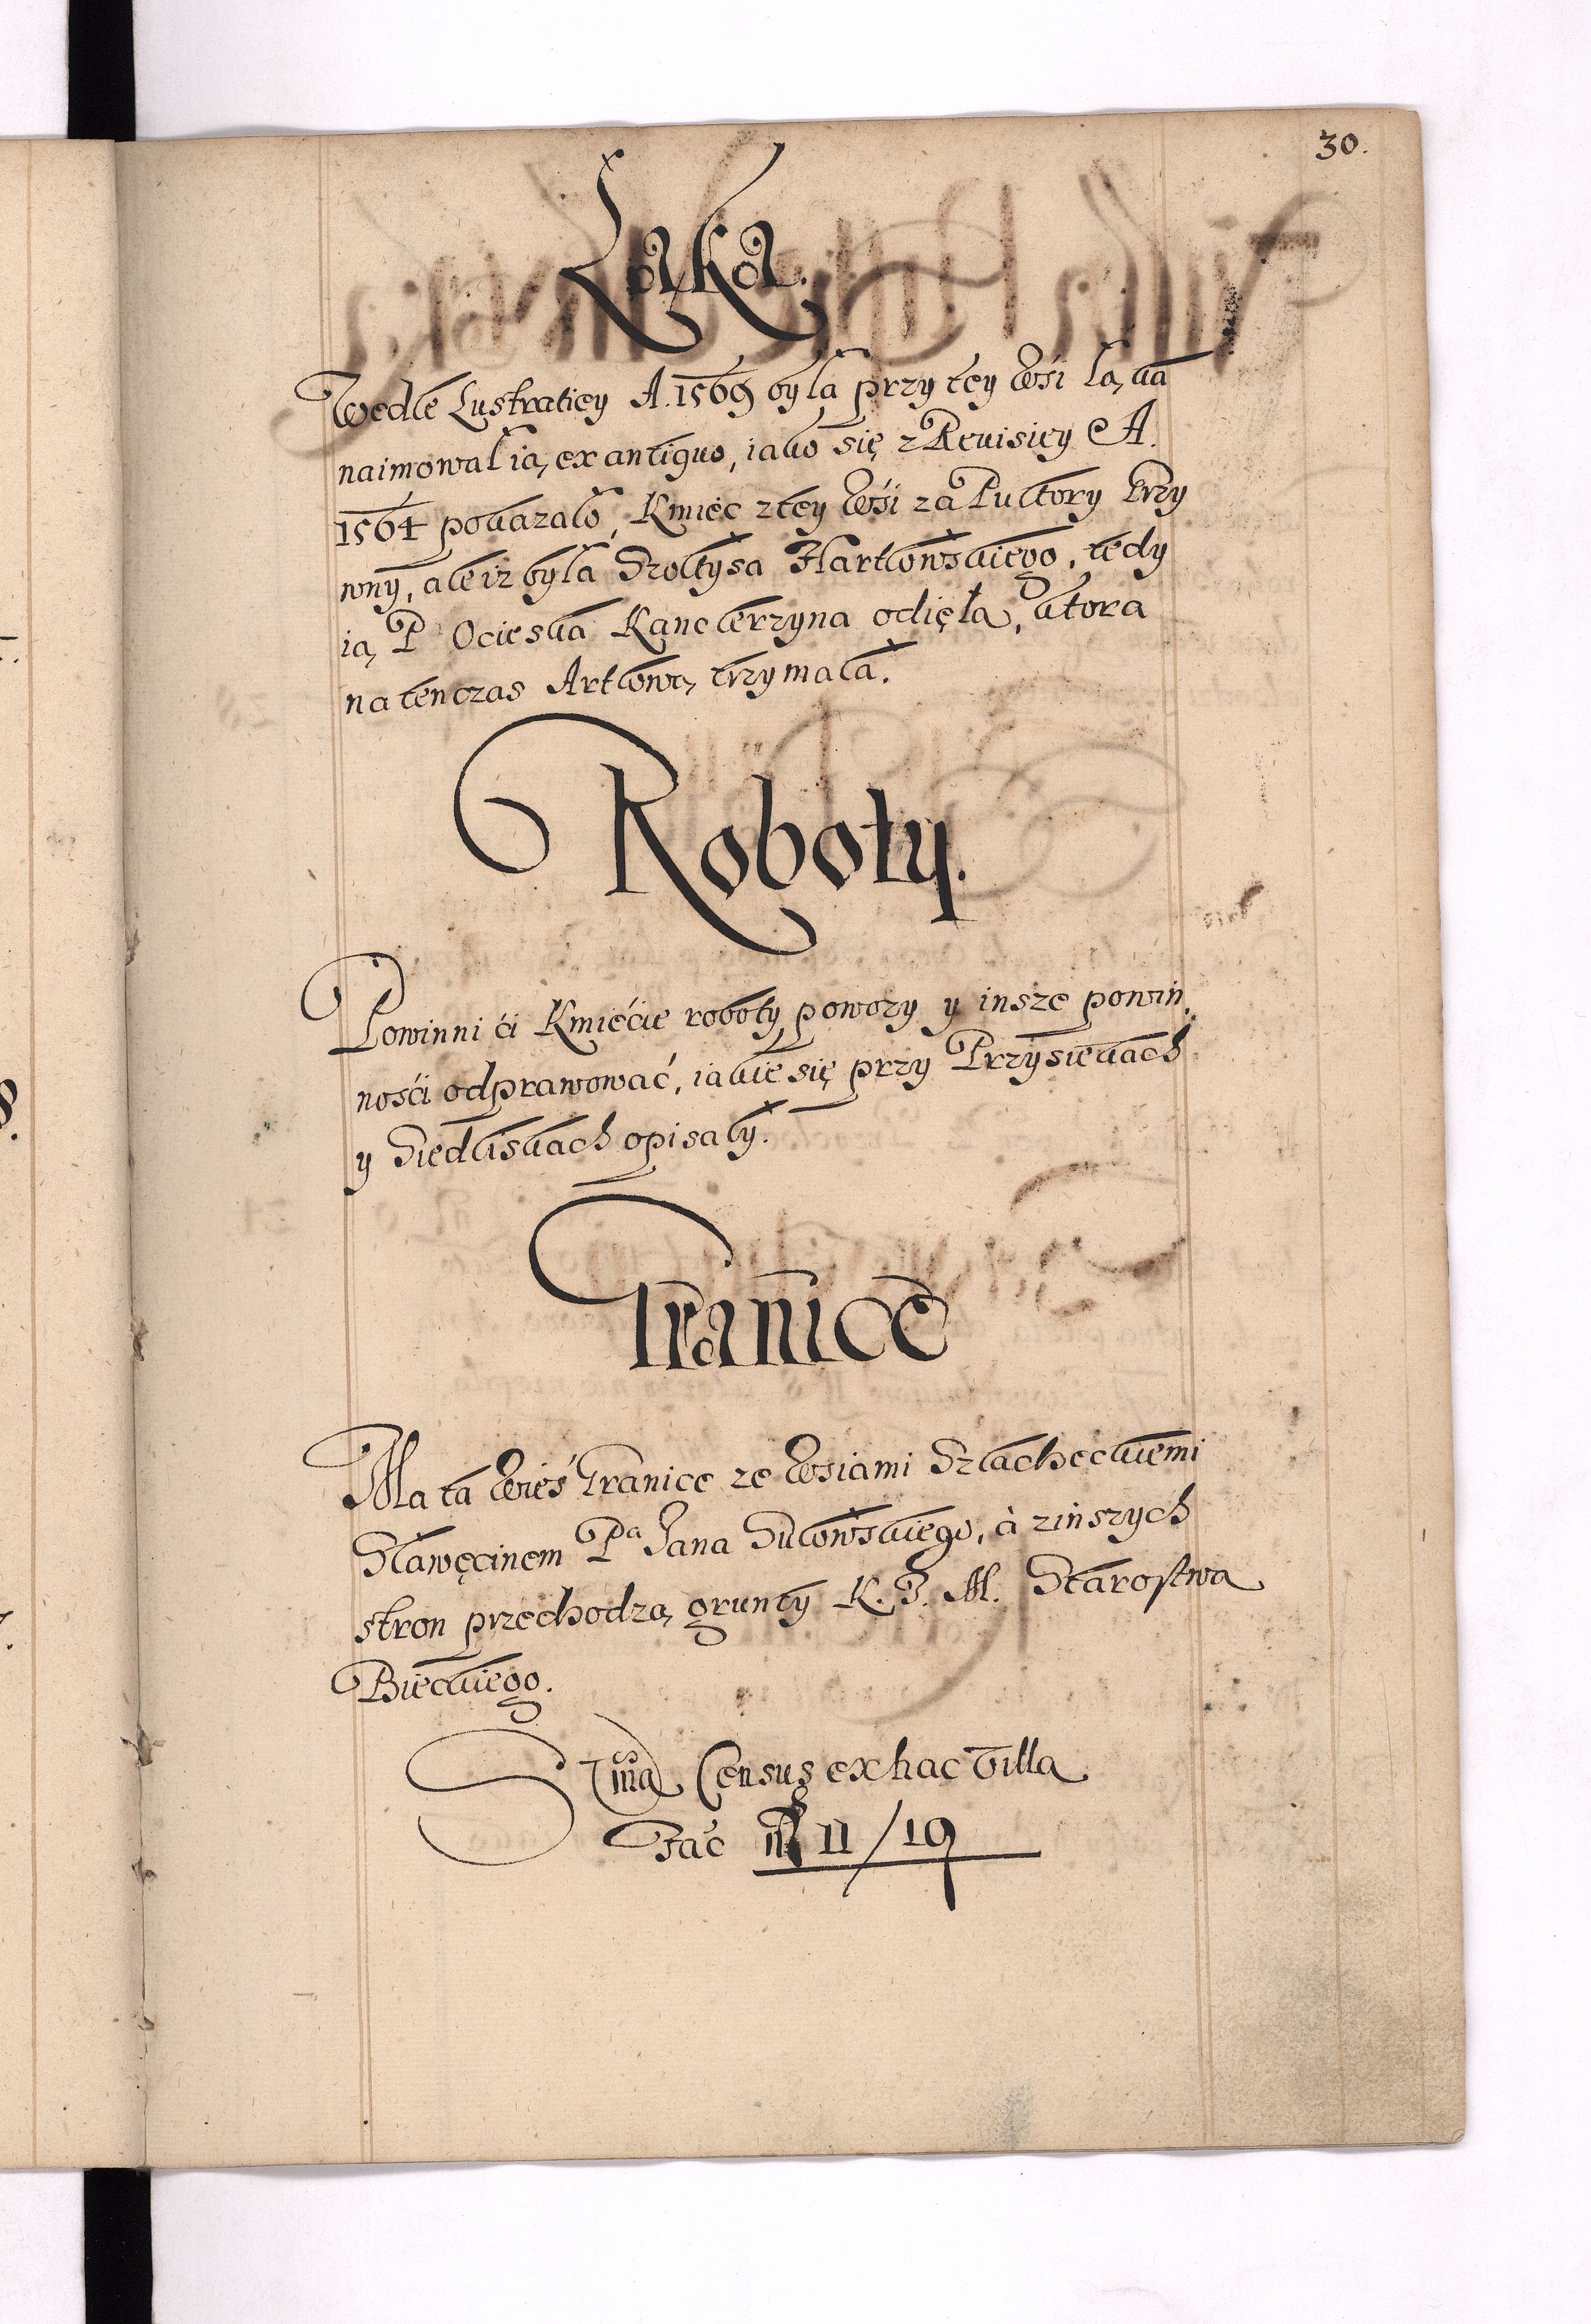 30.
Łąka.
Wedle Lustratiey A. 1569 była przy tey Wsi łąka
naimował ią, ex antiquo, iako się z Reuisiey A.
1564 pokazało, Kmieć z tey Wsi za Pułtory Grzy
wny, ale iż była Szołtysa Harklowskiego, tedy
ią, P Ocieska Kanclerzyna odięła, ktora
na ten czas Arklową, trzymała.
Roboty.
Powinni ći Kmiećie roboty powozy y insze powin,
nośći odprawować, iakie się przy Przysiekach
y Siedliskach opisały.
Granice
Ma ta Wieś Granice ze Wsiami Szlacheckiemi
Sławęcinem Pª Jana Sułowskiego, à z inszych
stron przechodzą, grunty K. J. M. Starostwa
Bieckiego.
Census ex hac Villa
Fac 11/19